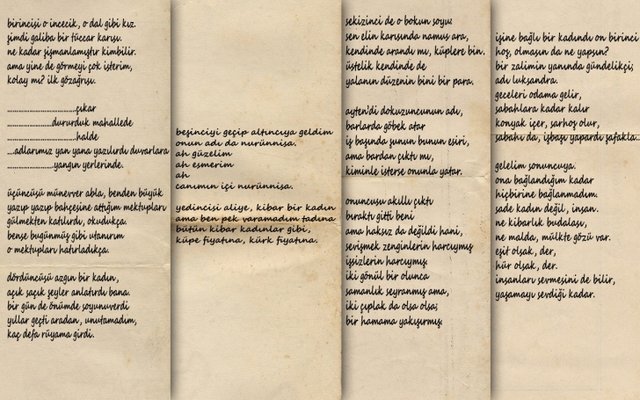 birincisi o incecik, o dal gibi kız.
şimdi galiba bir tüccar karısı.
ne kadar şişmanlamıştır kimbilir.
ama yine de görmeyi çok isterim,
kolay mı? ilk gözağrısı.
..............................çıkar
....................dururduk mahallede
..............................halde
...adlarımız yan yana yazılırdı duvarlara
....................yangın yerlerinde.
üçüncüsü münevver abla, benden büyük
yazıp yazıp bahçesine attığım mektupları
gülmekten katılırdı, okudukça.
bense bugünmüş gibi utanırım
o mektupları hatırladıkça.
dördüncüsü azgın bir kadın,
açık saçık şeyler anlatırdı bana.
bir gün de önümde soyunuverdi
yıllar geçti aradan, unutamadım,
kaç defa rüyama girdi.
beşinciyi geçip altıncıya geldim
onun adı da nurünnisa.
ah güzelim
ah esmerim
ah
canımın içi nurünnisa.
yedincisi aliye, kibar bir kadın
ama ben pek varamadım tadına
bütün kibar kadınlar gibi,
küpe fiyatına, kürk fiyatına.
sekizinci de o bokun soyu:
sen elin karısında namus ara,
kendinde arandı mı, küplere bin.
üstelik kendinde de
yalanın düzenin bini bir para.
ayten'di dokuzuncunun adı,
barlarda göbek atar
iş başında şunun bunun esiri,
ama bardan çıktı mı,
kiminle isterse onunla yatar.
onuncusu akıllı çıktı
bıraktı gitti beni
ama haksız da değildi hani,
sevişmek zenginlerin harcıymış
işsizlerin harcıymış
iki gönül bir olunca
samanlık seyranmış ama,
iki çıplak da olsa olsa;
bir hamama yakışırmış.
işine bağlı bir kadındı on birinci
hoş, olmasın da ne yapsın?
bir zalimin yanında gündelikçi;
adı luksandra.
geceleri odama gelir,
sabahlara kadar kalır
konyak içer, sarhoş olur,
sabahı da, işbaşı yapardı şafakla...
gelelim sonuncuya.
ona bağlandığım kadar
hiçbirine bağlanmadım.
sade kadın değil, insan.
ne kibarlık budalası,
ne malda, mülkte gözü var.
eşit olsak, der,
hür olsak, der.
insanları sevmesini de bilir,
yaşamayı sevdiği kadar.